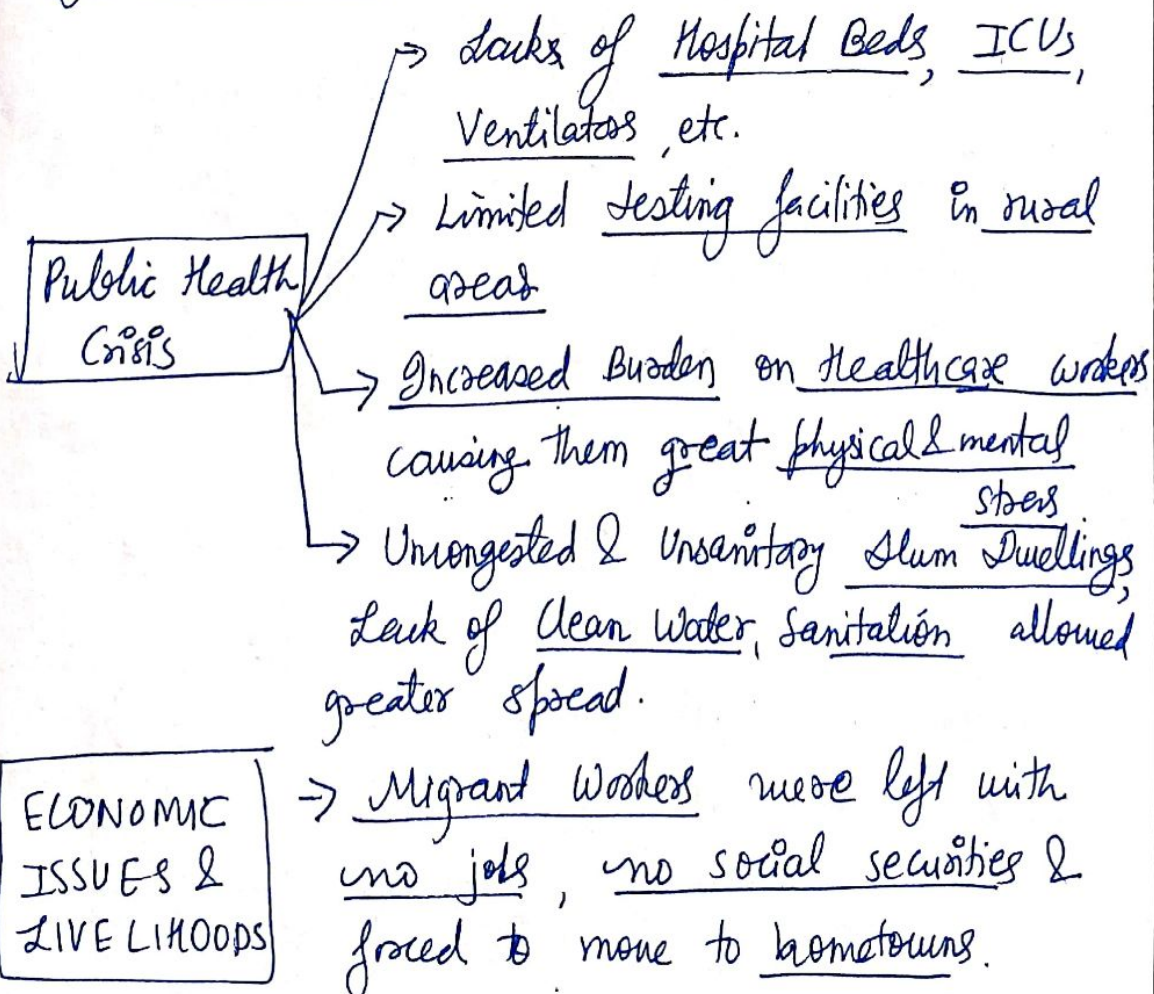 Lacks of Hospital Beds, ICUs,
Ventilators, etc.
Limited testing facilities in rural
areas
Public Health
Crisis
Increased Burden on Healthcare workers
causing them great physical & mental
stress.
Uncongested & Unsanitary Slum Dwellings,
Lack of Clean Water, Sanitation allowed
greater spread.
ECONOMIC
ISSUES &
LIVELIHOODS
Migrant Workers were left with
no jobs, no social securities &
forced to move to hometowns.